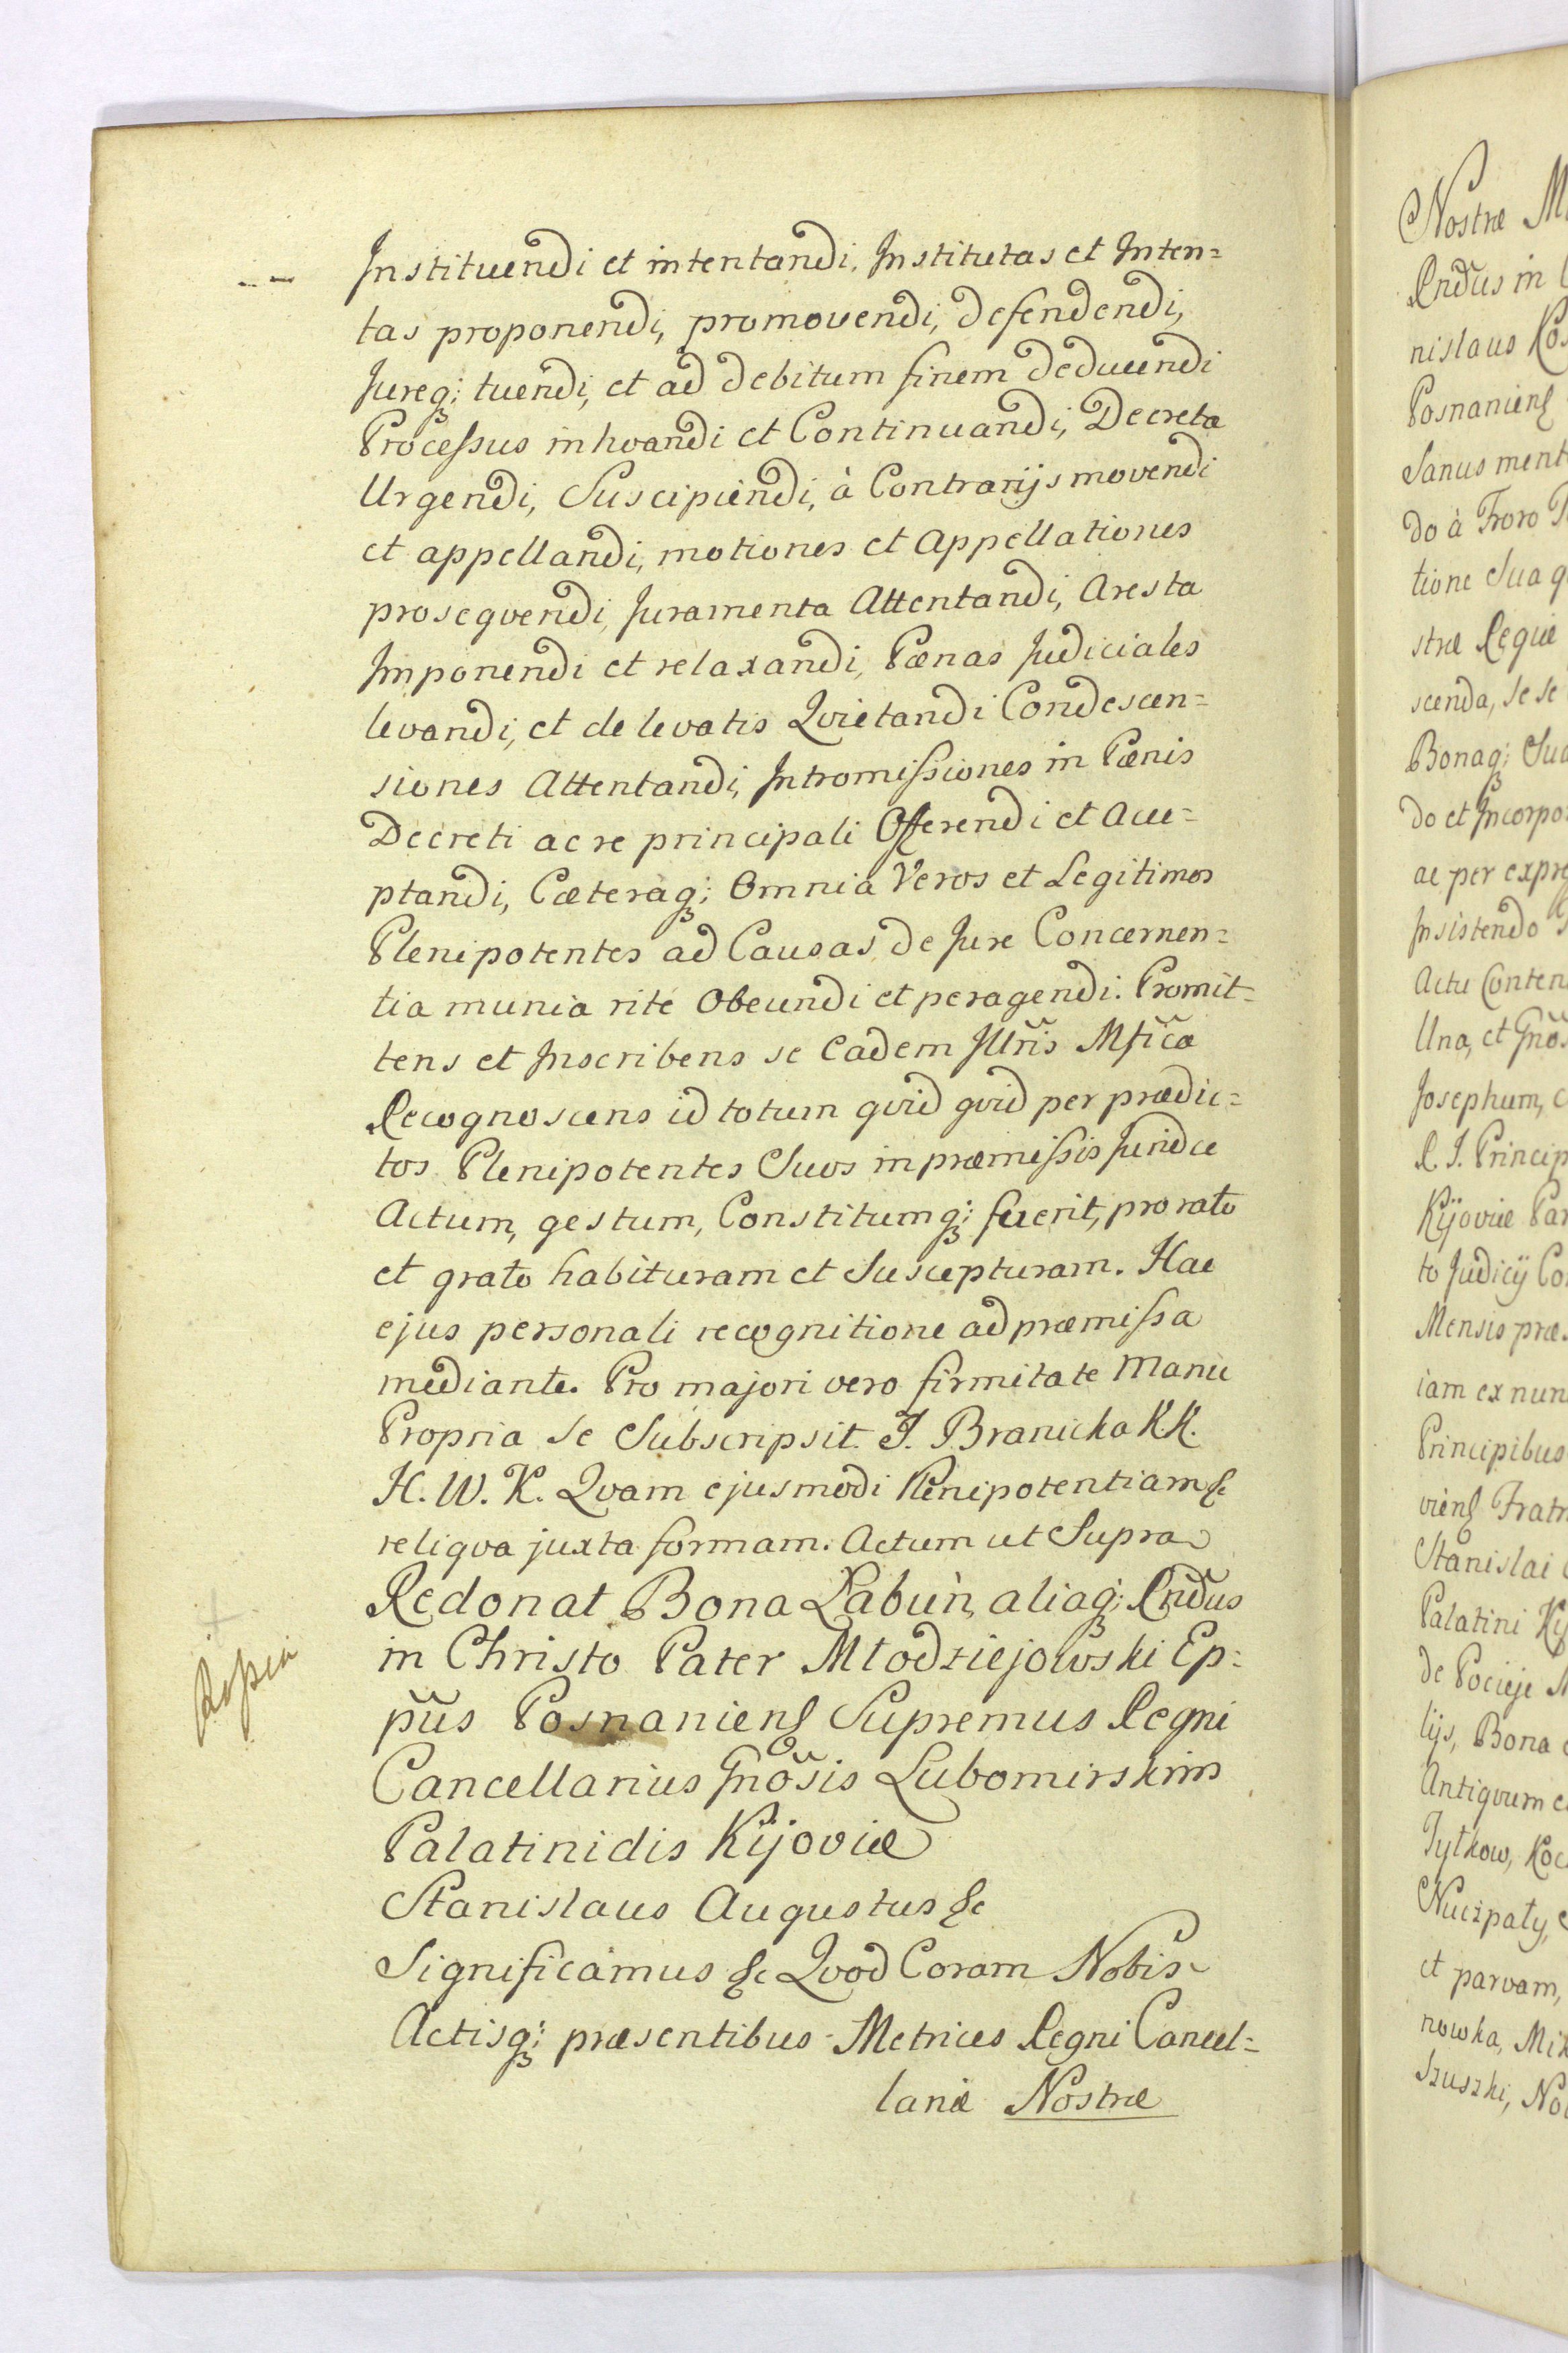 Instituendi et intentandi, Institutas et Inten=
tas proponendi, promovendi, defendendi,
Jureq; tuendi, et ad debitum finem deducendi
Processus inhoandi et Continuandi, Decreta
Urgendi, Suscipiendi, à Contrarijs movendi
et appellandi, motiones et Appellationes
proseqvendi, Juramenta Attentandi, Aresta
Imponendi et relaxandi, Pœnas Judiciales
levandi, et de levatis Qvietandi Condescen=
siones Attentandi, Intromissiones in Pœnis
Decreti ac re principali Offerendi et Acce=
ptandi, Cæteraq; Omnia Veros et Legitimos
Plenipotentes ad Causas de Jure Concernen=
tia munia rité Obeundi et peragendi. Promit=
tens et Inscribens se Eadem Illr̃is Mfica
Recognoscens id totum qvid qvid per prædic=
tos Plenipotentes Suos in præmissis Juridce
Actum, gestum, Constitumq; fuerit, pro rato
et grato habituram et Suscepturam. Hac
ejus personali recognitione ad præmissa
mediante. Pro majori vero firmitate Manu
Propria se Subscripsit. I. Branicka KK.
H. W. K. Qvam ejusmodi Plenipotentiam &c
reliqva juxta formam. Actum ut Supra
Redonat Bona Łabuń, aliaq; Rñdus
in Christo Pater Młodziejowski Ep=
pũs Posnaniens Supremus Regni
Cancellarius Gnõsis Lubomirskim
Palatinidis Kijoviæ
Stanislaus Augustus &c
Significamus &c Qvod Coram Nobis
Actisq; præsentibus Metrices Regni Cancel=
lariæ Nostræ
Nostræ
Rñdus in
nislaus
Posnaniens
Sanus ment
do à Froro
tione Sua q
stræ Regiæ
scenda, se se
Bonaq; Sua
do et Incorpo
ac per expre
Insistendo
Actu Conten
Una, et Gnõs
Josephum,
R. I. Princip
Kijoviæ Pa
to Judicij Co
Mensis præ
iam ex nun
Principibus
viens Fratr
Stanislai
Palatini Kij
de Pocieje
lijs, Bona
Antiqvum
Tytkow, Koc
Nuczpały,
et parvam,
nowka, Mik
szuszki, No